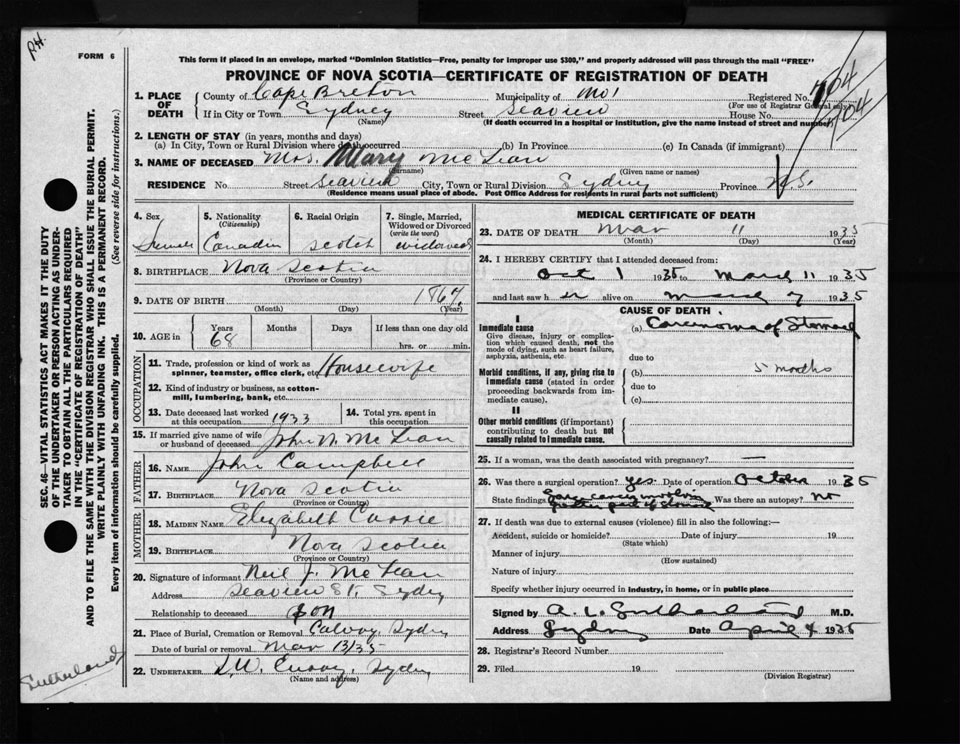 P.H.
FORM 6
This form if placed in an envelope, marked "Dominion Statistics—Free, penalty for improper use $300," and properly addressed will pass through the mail "FREE"
PROVINCE OF NOVA SCOTIA—CERTIFICATE OF REGISTRATION OF DEATH
1. PLACE OF DEATH County of Cape Breton Municipality of Registered No. 704
(For use of Registrar General only)
704
If in City or Town Sydney Street Seaview House No.
(Name) (If death occurred in a hospital or institution, give the name instead of street and number)
2. LENGTH OF STAY (in years, months and days)
(a) In City, Town or Rural Division where death occurred (b) In Province (c) In Canada (if immigrant)
3. NAME OF DECEASED Mrs. Mary McLean
(Surname) (Given name or names)
RESIDENCE No. Street Seaview City, Town or Rural Division Sydney Province N.S.
(Residence means usual place of abode. Post Office Address for residents in rural parts not sufficient)
4. Sex Female
5. Nationality (Citizenship) Canadian
6. Racial Origin Scotch
7. Single, Married, Widowed or Divorced (write the word) widowed
8. BIRTHPLACE Nova Scotia
(Province or Country)
9. DATE OF BIRTH 1867
(Month) (Day) (Year)
10. AGE in Years 68 Months Days If less than one day old
hrs. or min.
OCCUPATION
11. Trade, profession or kind of work as spinner, teamster, office clerk, etc. Housewife
12. Kind of industry or business, as cotton-mill, lumbering, bank, etc.
13. Date deceased last worked at this occupation 1933
14. Total yrs. spent in this occupation
15. If married give name of wife or husband of deceased John N. McLean
FATHER
16. NAME John Campbell
17. BIRTHPLACE Nova Scotia
(Province or Country)
MOTHER
18. MAIDEN NAME Elizabeth Currie
19. BIRTHPLACE Nova Scotia
(Province or Country)
20. Signature of informant Neil J. McLean
Address Seaview St. Sydney
Relationship to deceased Son
21. Place of Burial, Cremation or Removal Sydney
Date of burial or removal Mar 13/35
22. UNDERTAKER Sydney
(Name and address)
MEDICAL CERTIFICATE OF DEATH
23. DATE OF DEATH Mar 11 1935
(Month) (Day) (Year)
24. I HEREBY CERTIFY that I attended deceased from:
Oct 1 1935 to March 11 1935
and last saw her alive on March 7 1935
CAUSE OF DEATH
I
Immediate cause (a) Carcinoma of Stomach
Give disease, injury or complication which caused death, not the mode of dying, such as heart failure, asphyxia, asthenia, etc.
due to
Morbid conditions, if any, giving rise to immediate cause (stated in order proceeding backwards from immediate cause).
(b) 5 months
due to
(c)
II
Other morbid conditions (if important) contributing to death but not causally related to immediate cause.
25. If a woman, was the death associated with pregnancy? —
26. Was there a surgical operation? Yes Date of operation October 1935
State findings greater part of stomach Was there an autopsy? no
27. If death was due to external causes (violence) fill in also the following:—
Accident, suicide or homicide? Date of injury 19
(State which)
Manner of injury
(How sustained)
Nature of injury
Specify whether injury occurred in industry, in home, or in public place
Signed by A. L. Sutherland M.D.
Address Sydney Date April 4 1935
28. Registrar's Record Number
29. Filed 19
(Division Registrar)
SEC. 46—VITAL STATISTICS ACT MAKES IT THE DUTY
OF THE UNDERTAKER OR PERSON ACTING AS UNDER-
TAKER TO OBTAIN ALL THE PARTICULARS REQUIRED
IN THE "CERTIFICATE OF REGISTRATION OF DEATH"
AND TO FILE THE SAME WITH THE DIVISION REGISTRAR WHO SHALL ISSUE THE BURIAL PERMIT.
WRITE PLAINLY WITH UNFADING INK. THIS IS A PERMANENT RECORD.
Every item of information should be carefully supplied. (See reverse side for instructions.)
Sutherland